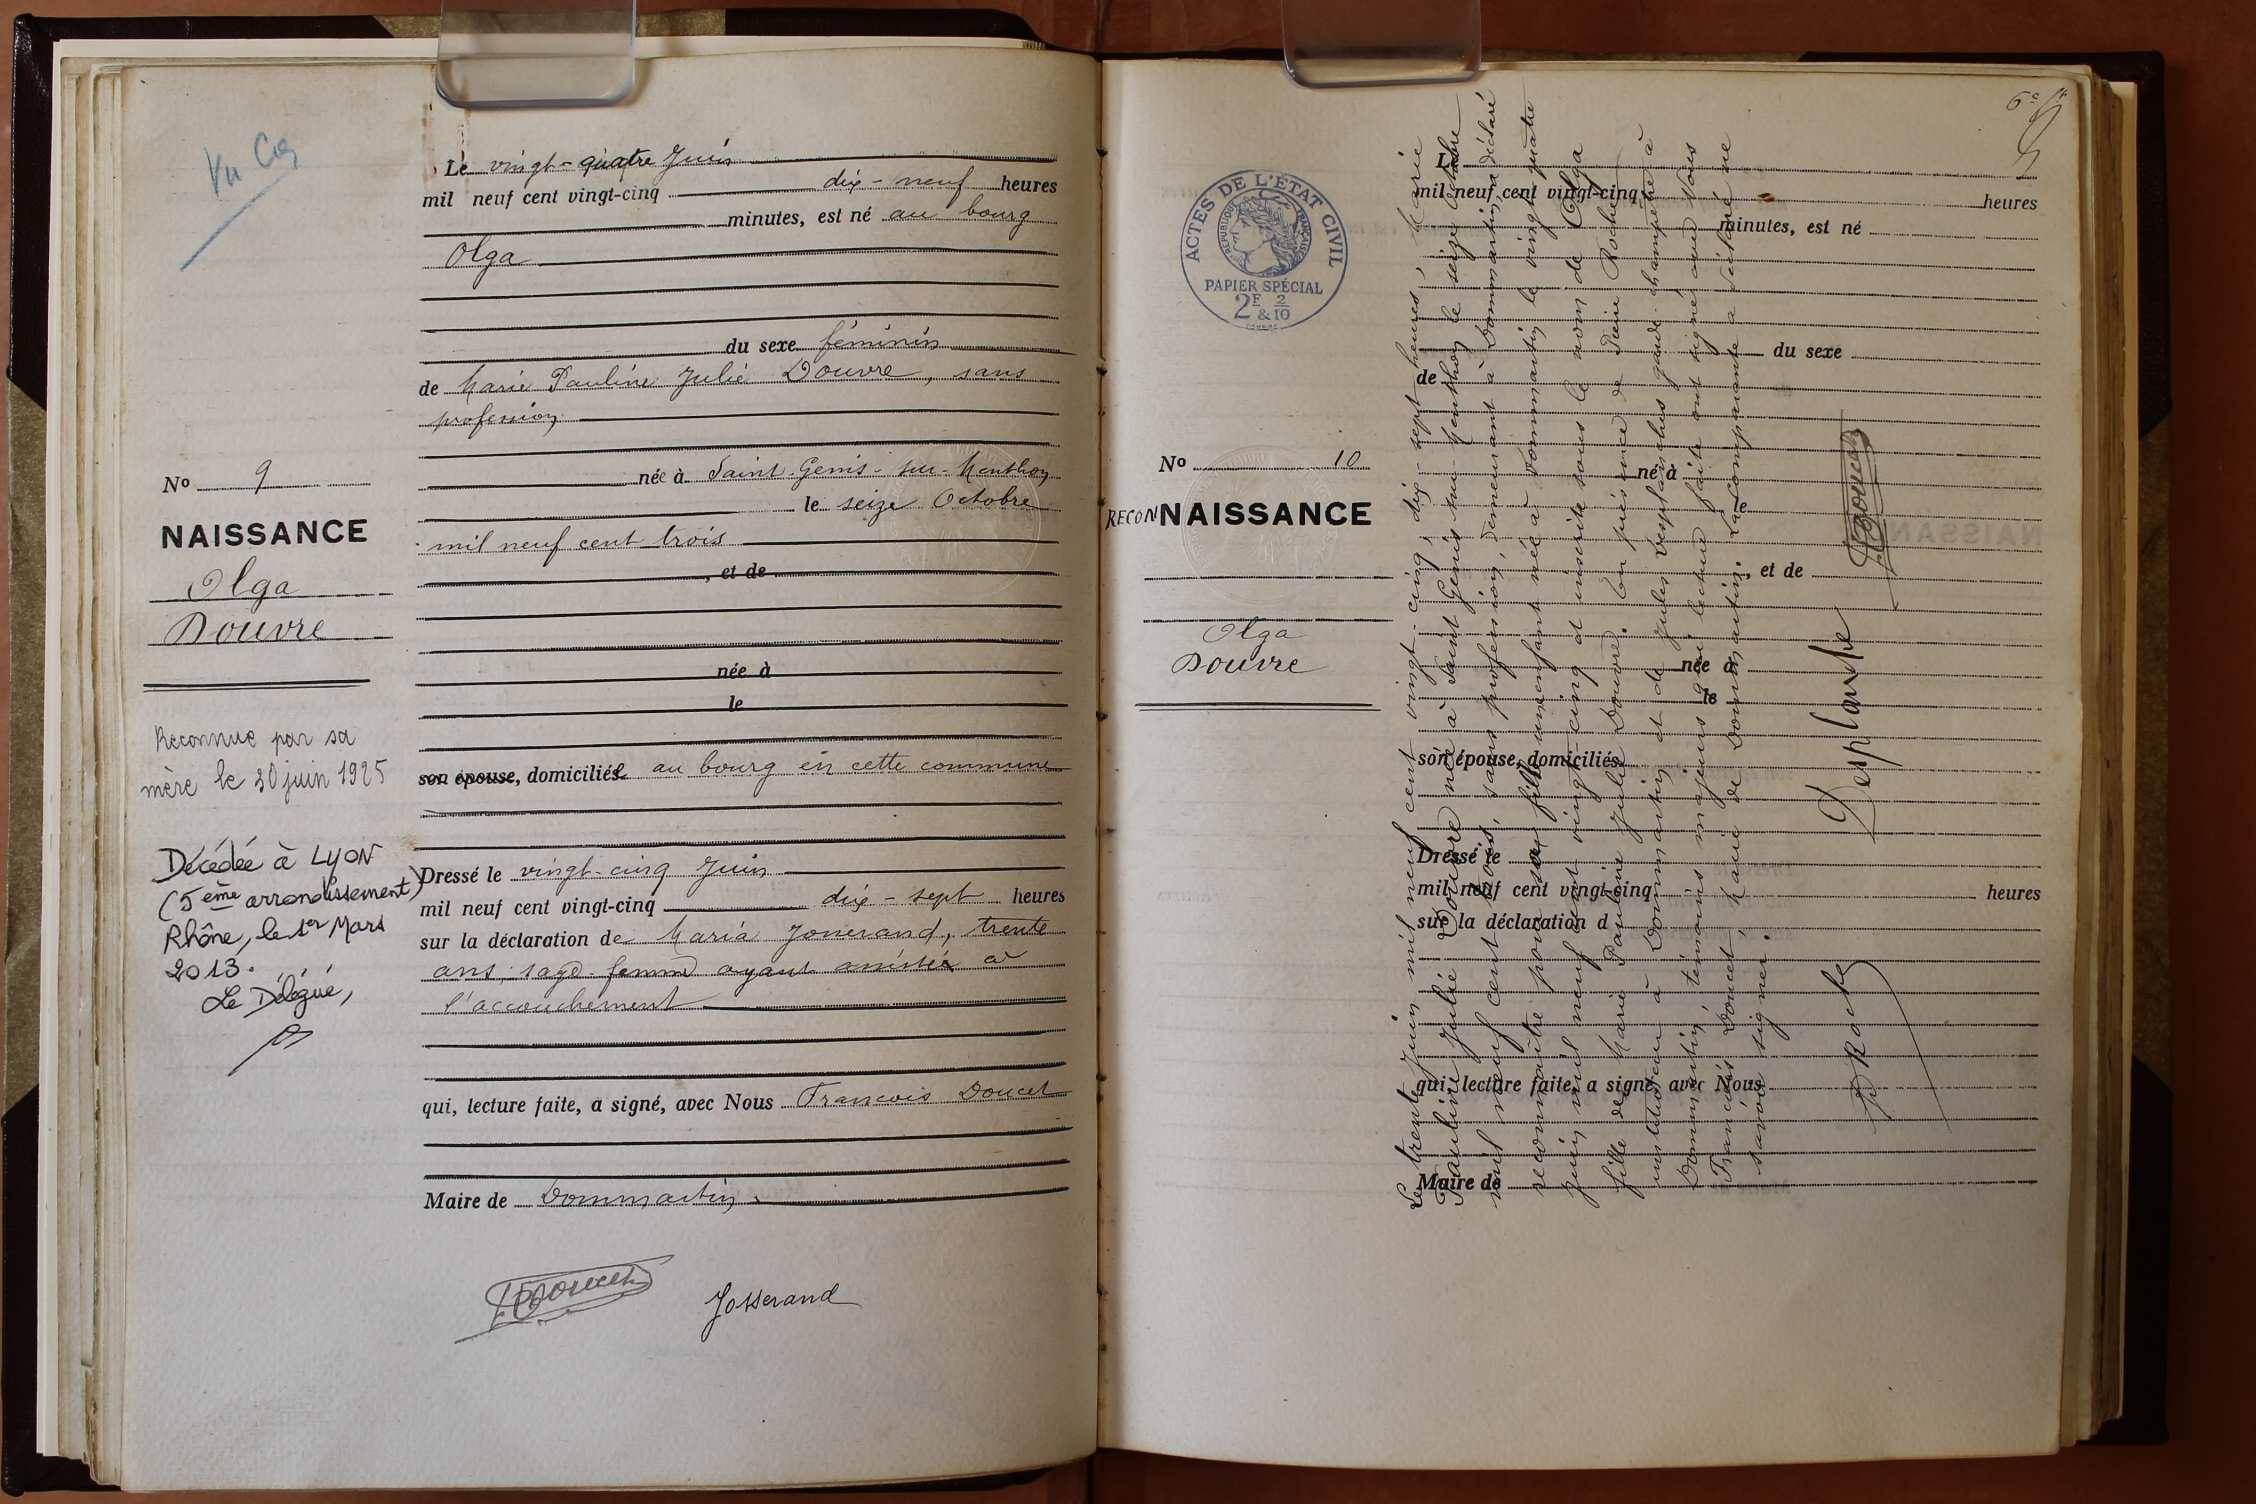 Vu
Le vingt-quatre Juin
mil neuf cent vingt-cinq dix-neuf heures
minutes, est né au bourg
Olga
du sexe féminin
de Marie Pauline Julie Douvre, sans
profession
née à Saint-Genis-sur-Menthon
le seize Octobre
mil neuf cent trois
, et de
née à
le
son épouse, domiciliée au bourg en cette commune
Dressé le vingt-cinq Juin
mil neuf cent vingt-cinq dix-sept heures
sur la déclaration de Maria Josserand, trente
ans, sage-femme ayant assisté à
l'accouchement
qui, lecture faite, a signé, avec Nous François Doucet
Maire de Dommartin.
F Doucet
Josserand
No 9
NAISSANCE
Olga
Douvre
Reconnue par sa
mère le 30 juin 1925
Décédée à LYON
(5ème arrondissement)
Rhône, le 1er Mars
2013.
Le Délégué,
6e
ACTES DE L'ÉTAT CIVIL
RÉPUBLIQUE FRANÇAISE
PAPIER SPÉCIAL
2F 2/10
&
No 10
RECONNAISSANCE
Olga
Douvre
Le
mil neuf cent vingt-cinq heures
minutes, est né
du sexe
de
né à
le
, et de
née à
le
son épouse, domiciliés
Dressé le
mil neuf cent vingt-cinq heures
sur la déclaration d
qui, lecture faite, a signé, avec Nous
Maire de
Le trente Juin mil neuf cent vingt-cinq, dix-sept heures, Marie
Pauline Julie Douvre née à Saint Genis sur Menthon le seize Octobre
mil neuf cent trois, sans profession, demeurant à Dommartin, a déclaré
reconnaître pour sa fille un enfant née à Dommartin le vingt quatre
juin mil neuf cent vingt-cinq et inscrite sous le nom de Olga
fille de Marie Pauline Julie Douvre. En présence de Pierre Roche
instituteur à Dommartin et de Jules Desplanches garde-champêtre à
Dommartin, témoins majeurs qui lecture faite ont signé avec Nous
François Doucet, Maire de Dommartin. La comparante a déclaré ne
savoir signer.
P Roche
Desplanche
F Doucet